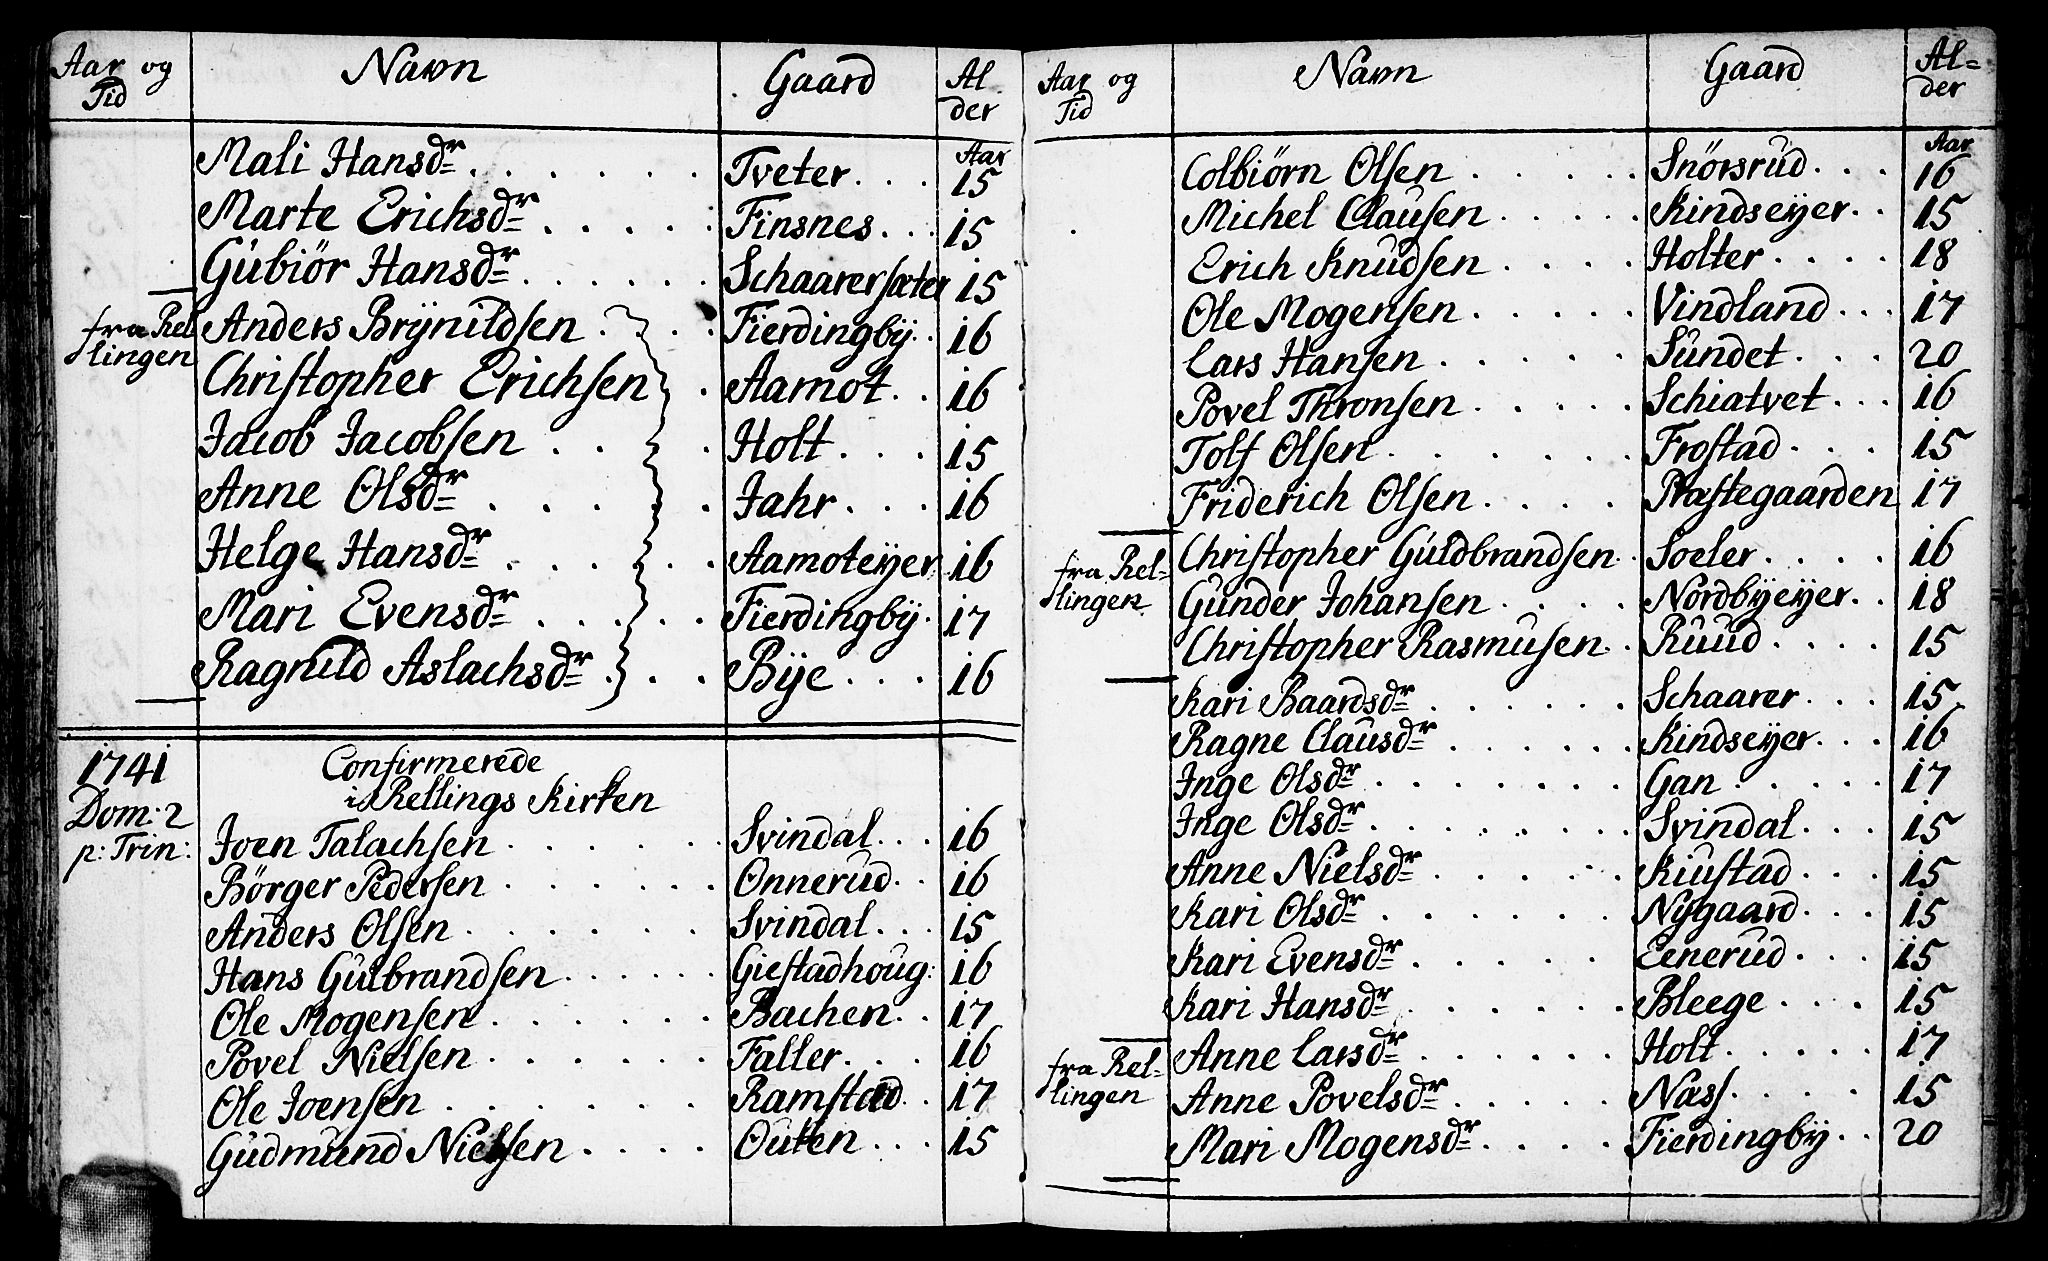 Aar og Tid | Navn | Gaard | Alder
Aar
Mali Hansdr | Tveter | 15
Marte Erichsdr | Finsnes | 15
Gubiör Hansdr | Schaarersæter | 15
fra Rellingen | Anders Brÿnildsen | Fierdingbÿ | 16
Christopher Erichsen | Aamot | 16
Jacob Jacobsen | Holt | 15
Anne Olsdr | Jahr | 16
Helge Hansdr | Aamoteÿer | 16
Mari Evensdr | Fierdingbÿ | 17
Ragnild Aslachsdr | Bÿe | 16
1741 Dom: 2 p: Trin: | Confirmerede
i Rellings Kirken
Joen Talachsen | Svindal | 16
Börger Pedersen | Onnerud | 16
Anders Olsen | Svindal | 15
Hans Gulbrandsen | Giestadhoug: | 16
Ole Mogensen | Bachen | 17
Povel Nielsen | Faller | 16
Ole Joensen | Ramstad | 17
Gudmund Nielsen | Outen | 15
Aar og Tid | Navn | Gaard | Al=der
Aar
Colbiörn Olsen | Snörsrud | 16
Michel Clausen | Kindseÿer | 15
Erich Knudsen | Holter | 18
Ole Mogensen | Vindland | 17
Lars Hansen | Sundet | 20
Povel Thronsen | Schiatvet | 16
Tolf Olsen | Frostad | 15
Friderich Olsen | Præstegaarden | 17
fra Rel=lingen | Christopher Guldbrandsen | Soeler | 16
Gunder Johansen | Nordbÿeÿer | 18
Christopher Rasmusen | Ruud | 15
Kari Baardsdr | Schaarer | 15
Ragne Clausdr | Kindseÿer | 16
Inge Olsdr | Gan | 17
Inge Olsdr | Svindal | 15
Anne Nielsdr | Kiustad | 15
Kari Olsdr | Nÿgaard | 15
Kari Evensdr | Eenerud | 15
Kari Hansdr | Bleege | 15
fra Rel=lingen | Anne Larsdr | Holt | 17
Anne Povelsdr | Næss | 15
Mari Mogensdr | Fierdingbÿ | 20